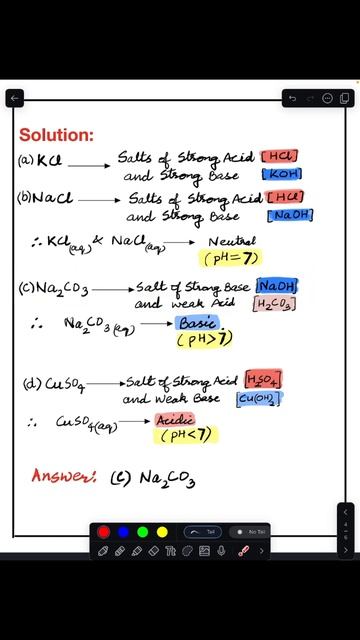 Solution:
(a) KCl → Salts of Strong Acid [HCl]
and Strong Base [KOH]
(b) NaCl → Salts of Strong Acid [HCl]
and Strong Base [NaOH]
∴ KCl(aq) & NaCl(aq) → Neutral
(pH = 7)
(C) Na₂CO₃ → Salt of Strong Base [NaOH]
and weak Acid [H₂CO₃]
∴ Na₂CO₃(aq) → Basic.
(pH>7)
(d) CuSO₄ → Salt of Strong Acid [H₂SO₄]
and Weak Base [Cu(OH)₂]
∴ CuSO₄(aq) → Acidic
(pH<7)
Answer: (C) Na₂CO₃
4
6
Tail
No Tail